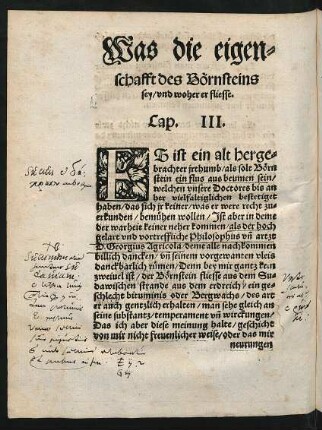 Was die eigen-
schafft des Börnsteins
sey/ vnd woher er fliesse.
Cap. III.
ES ist ein alt herge-
brachter jrthumb/ als sole Börn
stein ein flus aus beumen sein/
welchen vnsere Doctores bis an
her vielfaltiglichen befestiget
haben/ das sich je keiner/ was er were recht zu
erkunden/ bemühen wollen/ Ist aber in deme
der warheit keiner neher kommen/ als der hoch
gelart vnd vortreffliche Philosophus vñ artzt
D. Georgius Agricola/ deme alle nachkommen
billich dancken/ vñ seinem vorgewanten vleis
danckbarlich rümen. Denn bey mir gantz kein
zweiuel ist/ der Börnstein fliesse aus dem Su-
dawischen strande aus dem erdreich/ ein ge-
schlecht bituminis oder Bergwachs/ des art
er auch gentzlich erhalten/ man sehe gleich an
seine substantz/ temperament vñ wirckungen/
Das ich aber diese meinung halte/ geschicht
von mir nicht freuenlicher weise/ oder das mir
neurungen